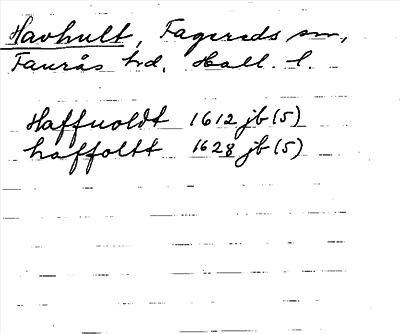 Havhult, Fagereds sn,
Faurås hd, Hall. l.
Haffuoldt 1612 jb (5)
haffoltt 1628 jb (5)